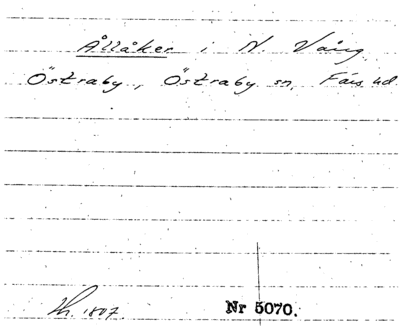 Ållåker i N. Vång
Östraby, Östraby sn, Färs hd
1807.
Nr 5070.